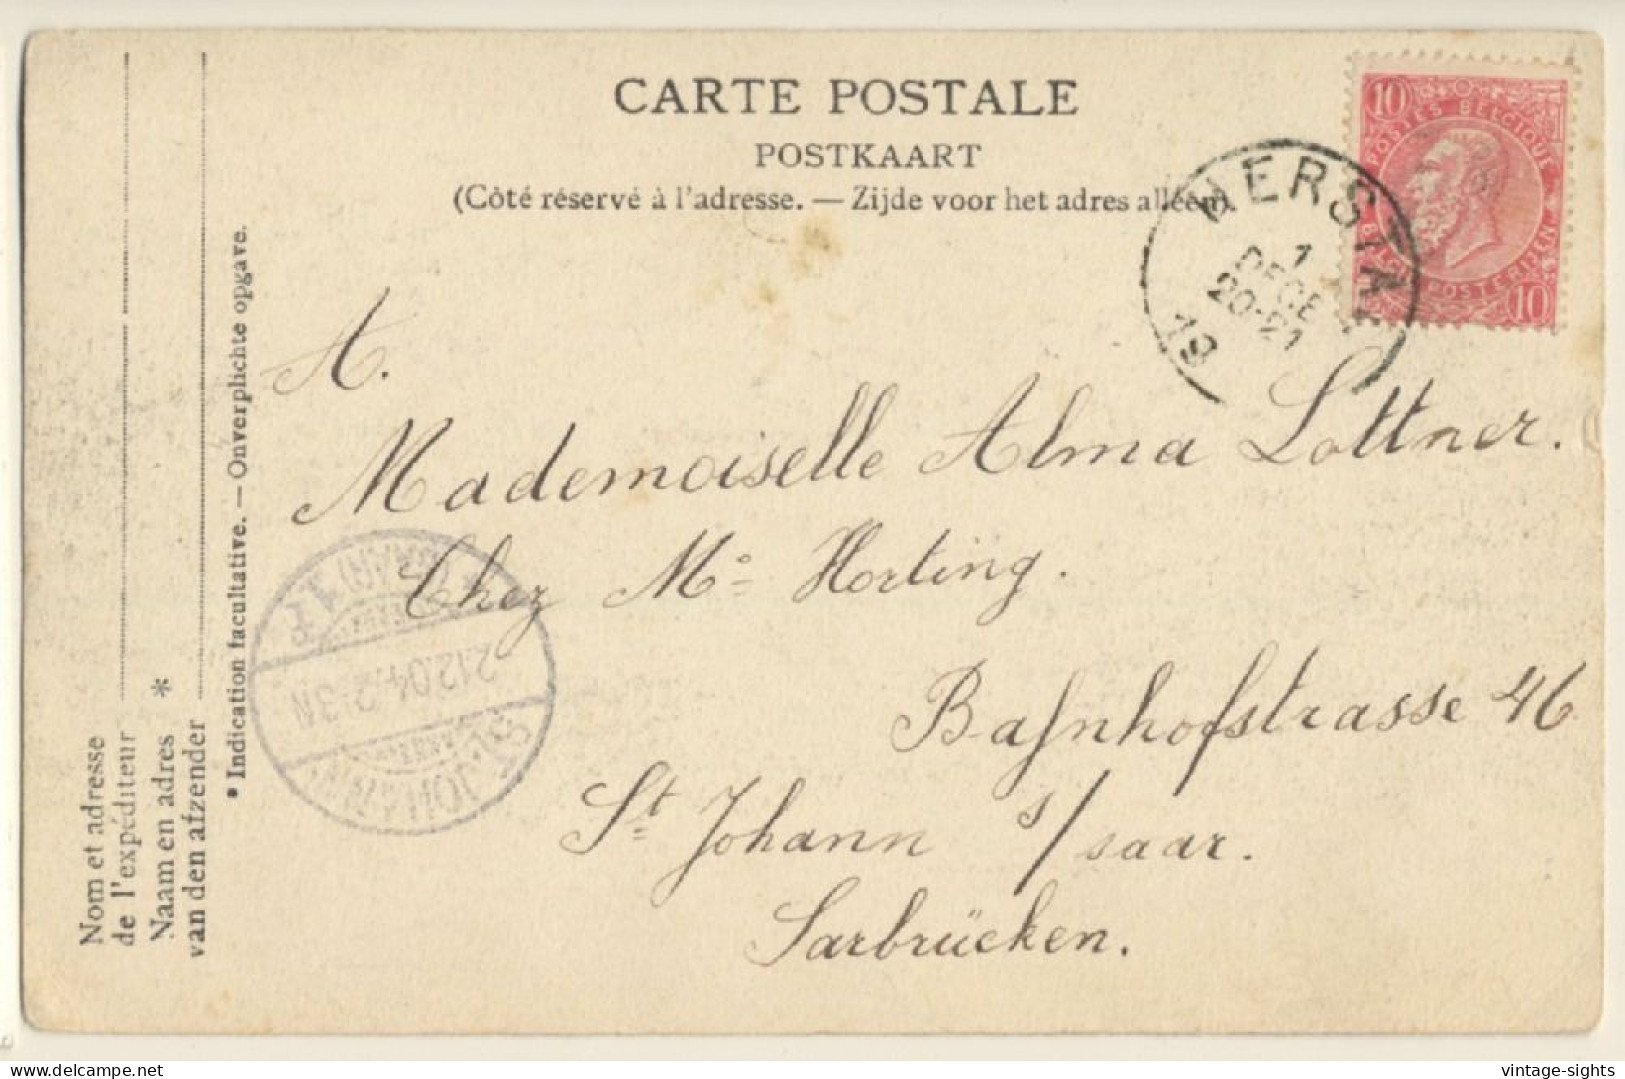 CARTE POSTALE
POSTKAART
(Côté réservé à l'adresse. — Zijde voor het adres alléén)
10 10
POSTES BELGIQUE
BELGIË POSTERIJEN
HERSTA
1
DECE
20-21
19
A.
Mademoiselle Alma Lottner.
Chez Mo Horting.
Bahnhofstrasse 46
St Johann s/saar.
Sarbrücken.
ST. JOHANN
2.12.04. 2-3N
(SAAR) 1 P
Nom et adresse
de l'expéditeur
Naam en adres *
van den afzender
* Indication facultative. — Onverplichte opgave.
delcampe.net
vintage-sights